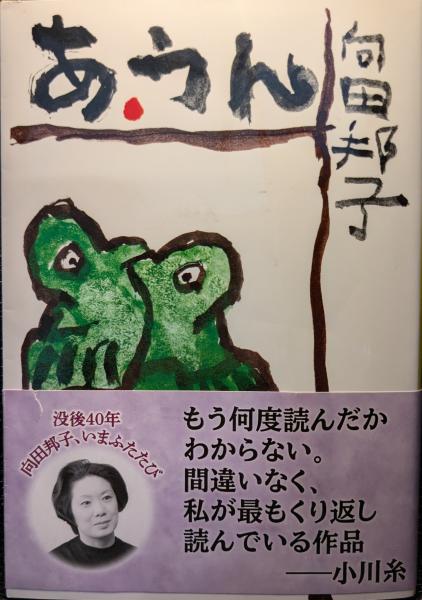 あ・うん
向田邦子
没後40年
向田邦子、いまふたたび
もう何度読んだか
わからない。
間違いなく、
私が最もくり返し
読んでいる作品
──小川糸